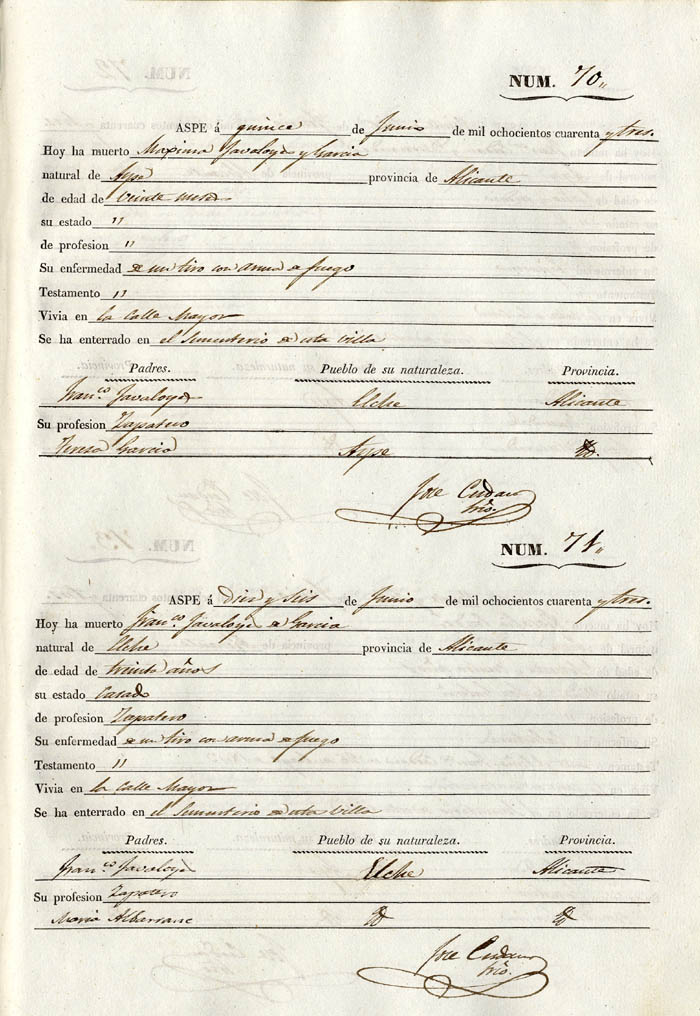 NUM. 70,,
ASPE á quince de Junio de mil ochocientos cuarenta y tres.
Hoy ha muerto Maxima Javaloyes y Garcia
natural de Aspe provincia de Alicante
de edad de veinte meses
su estado "
de profesion "
Su enfermedad de un tiro con arma de fuego
Testamento "
Vivia en la Calle Mayor
Se ha enterrado en el Sementerio de esta villa
Padres. Pueblo de su naturaleza. Provincia.
Fran.co Javaloyes Elche Alicante
Su profesion Zapatero
Teresa Garcia Aspe Yd.
Jose
NUM. 71,,
ASPE á Diez y Seis de Junio de mil ochocientos cuarenta y tres.
Hoy ha muerto Fran.co Javaloyes de Garcia
natural de Elche provincia de Alicante
de edad de treinta años
su estado Casado
de profesion Zapatero
Su enfermedad de un tiro con arma de fuego
Testamento "
Vivia en la Calle Mayor
Se ha enterrado en el Sementerio de esta Villa
Padres. Pueblo de su naturaleza. Provincia.
Fran.co Javaloyes Elche Alicante
Su profesion Zapatero
Maria Yd Yd
Jose